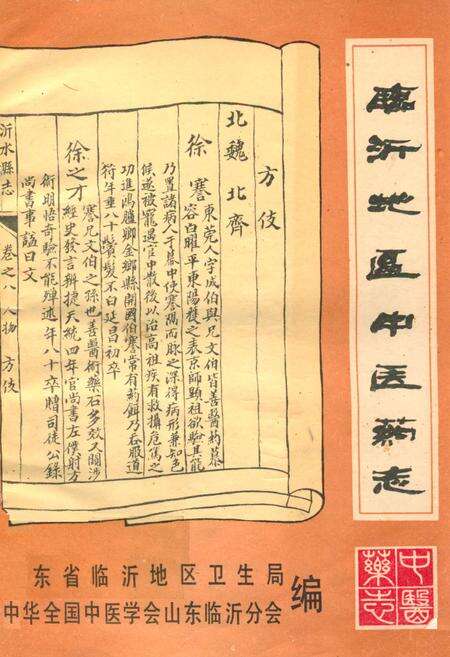 臨沂地区中医药志
方伎
北魏 北齊
徐謇 東莞人字成伯與兄文伯皆善醫药慕
容白曜平東陽獲之表京師顕祖欲驗其能
乃置諸病人于幕中使謇隔而脉之深得病形兼知色
候遂被寵遇官中散後以治高祖疾有救攝危篤之
功進鴻臚卿金鄉縣開國伯謇常有药餌乃吞服道
符年垂八十鬢髮不白延昌初卒
徐之才 謇兄文伯之孫也善醫術藥石多效又闚涉
經史發言辯捷天統四年官尚書左僕射方
術明悟奇驗不能殫述年八十卒贈司徒公錄
尚書事謚曰文
沂水縣志 卷之八 人物 方伎
中醫藥志
东省临沂地区卫生局
中华全国中医学会山东临沂分会
编